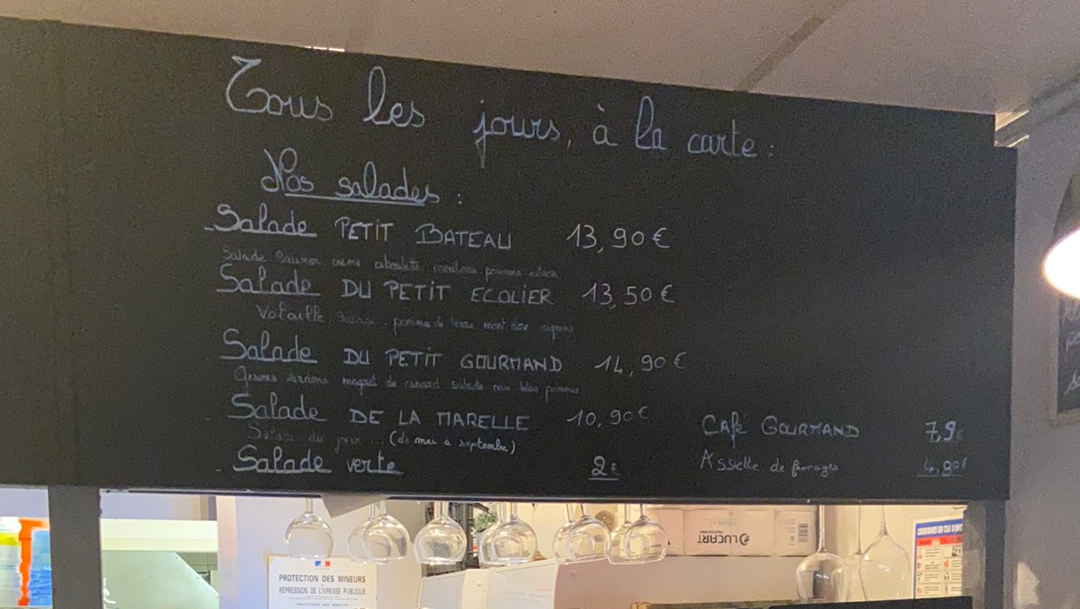 Tous les jours, à la carte :
Nos salades :
- Salade PETIT BATEAU 13,90 €
Salade saumon crème ciboulette croutons poivrons
Salade DU PETIT ECOLIER 13,50 €
Volaille, pommes de terre mont dore oignons
Salade DU PETIT GOURMAND 14,90 €
Gésiers lardons magret de canard salade noix bleu pommes
- Salade DE LA MARELLE 10,90 €
Salade du jour ... (de mai à septembre)
- Salade verte 2 €
Café GOURMAND 7,9
Assiette de fromages 4,80€
LUCART
PROTECTION DES MINEURS
RÉPRESSION DE L'IVRESSE PUBLIQUE